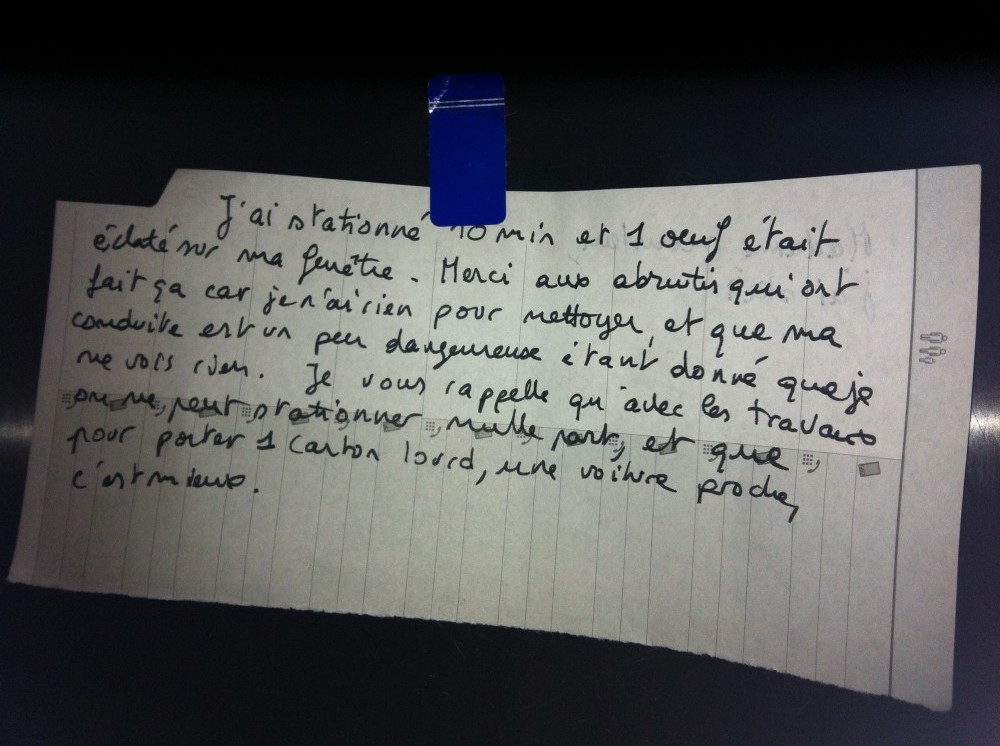 J'ai stationné 10 min et 1 oeuf était
éclaté sur ma fenêtre. Merci aux abrutis qui ont
fait ça car je n'ai rien pour nettoyer, et que ma
conduite est un peu dangereuse étant donné que je
ne vois rien. Je vous rappelle qu'avec les travaux
on ne peut stationner nulle part, et que,
pour porter 1 carton lourd, une voiture proche,
c'est mieux.